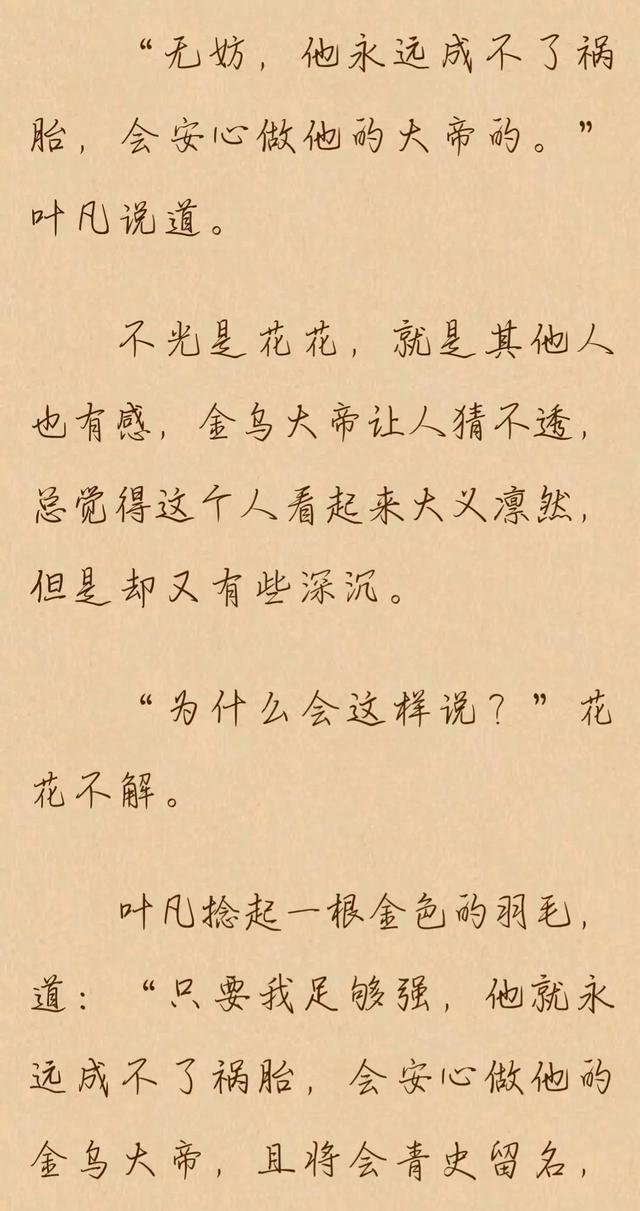 “无妨，他永远成不了祸
胎，会安心做他的大帝的。”
叶凡说道。
不光是花花，就是其他人
也有感，金乌大帝让人猜不透，
总觉得这个人看起来大义凛然，
但是却又有些深沉。
“为什么会这样说？”花
花不解。
叶凡捻起一根金色的羽毛，
道：“只要我足够强，他就永
远成不了祸胎，会安心做他的
金乌大帝，且将会青史留名，